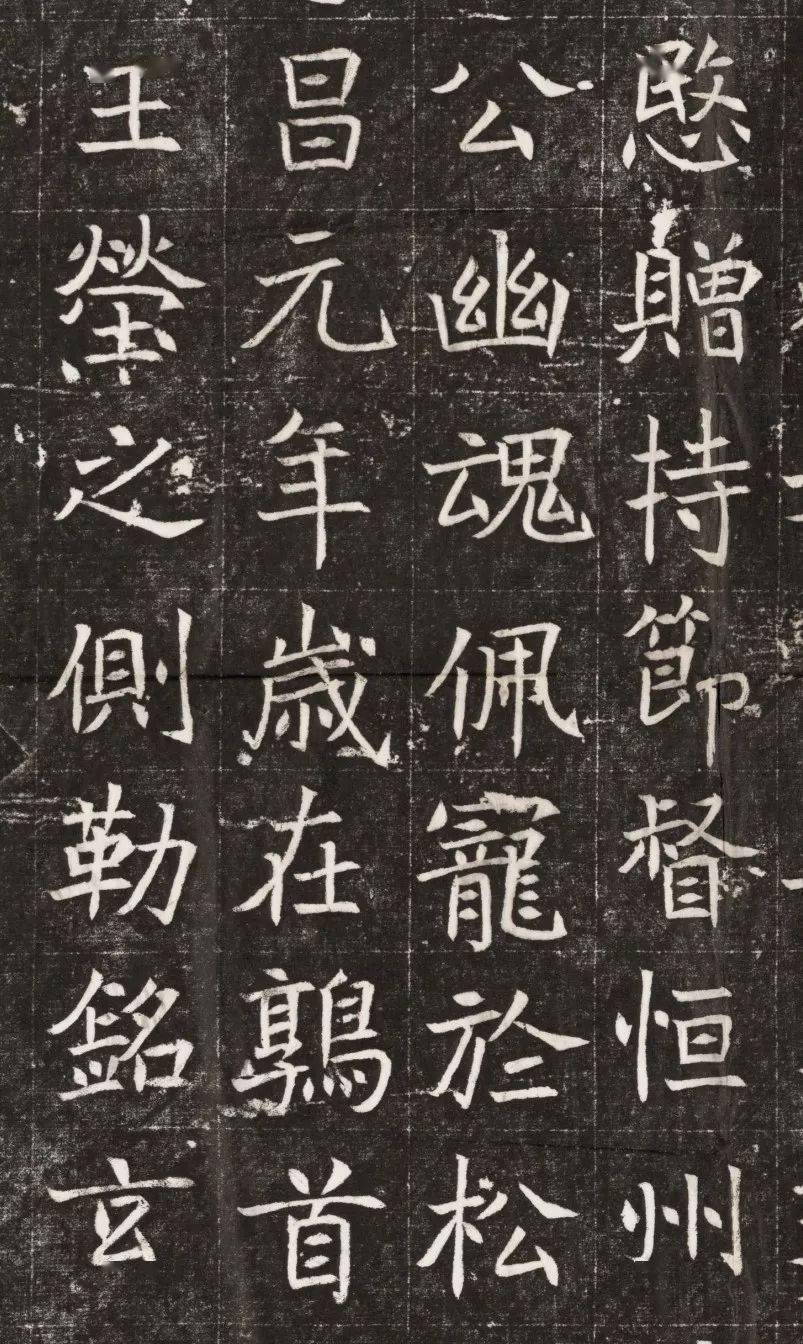 愍贈持節督恒州
公幽魂佩寵於松
昌元年歲在鶉首
王塋之側勒銘玄